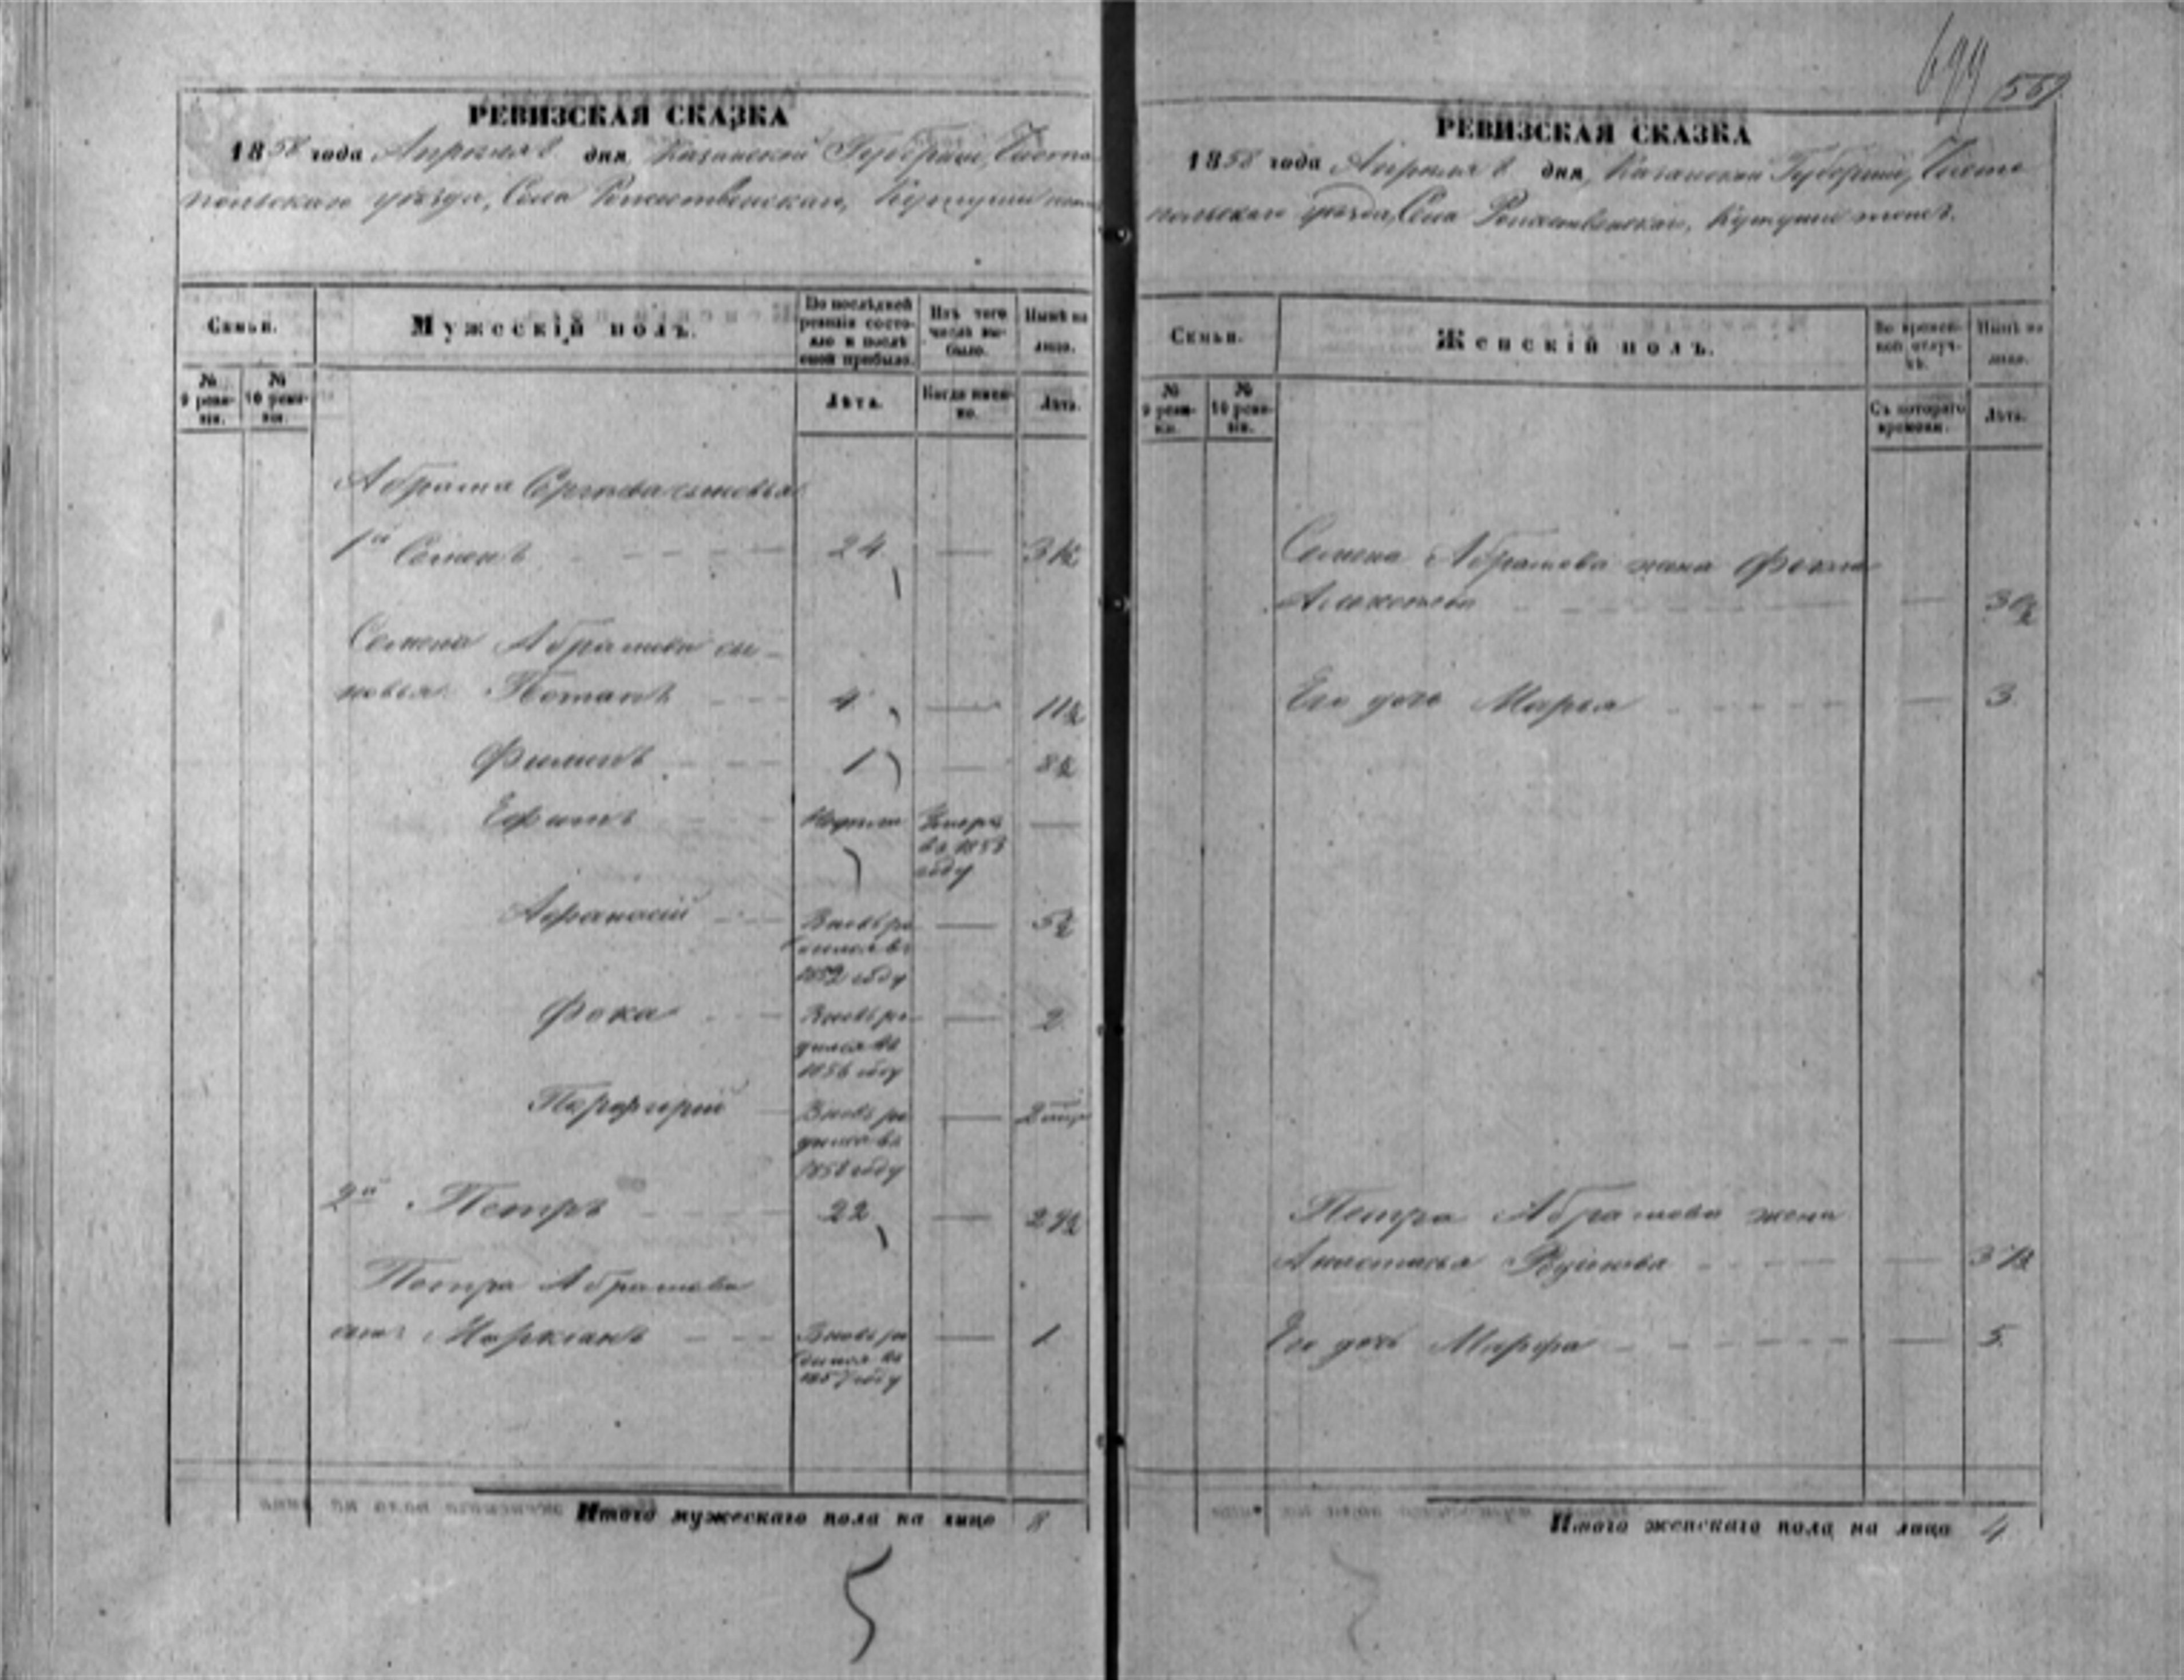 РЕВИЗСКАЯ СКАЗКА
1858 года Апреля 8 дня, Казанской Губернии, Чисто-
польскаго уезда, Села Рожественскаго, Кутуши тожъ
Семьи.
Мужескій полъ.
По послѣдней ревизіи состояло и послѣ оной прибыло.
Изъ того числа выбыло.
Нынѣ на лицо.
№ 9 ревизіи.
№ 10 ревизіи.
Лѣта.
Когда именно.
Лѣта.
Абрама Сергѣева сыновья
1й Семенъ 24 — 32½
Семена Абрамова сы-
новья Потапъ 4 — 11½
Филипъ 1 — 8½
Ефимъ Недели Умеръ —
въ 1853
году
Афанасій Вновь ро — 5½
дился въ
1852 году
Фока Вновь ро — 2
дился въ
1856 году
Порфирій Вновь ро —
дился въ
1858 году
2й Петръ 22 — 29½
Петра Абрамова
сынъ Маркіанъ Вновь ро — 1
дился въ
1857 году
Итого мужескаго пола на лицо 8
5
699 569
РЕВИЗСКАЯ СКАЗКА
1858 года Апреля 8 дня, Казанской Губернии, Чисто
польскаго уезда, Села Рожественскаго, Кутуши тожъ.
Семьи.
Женскій полъ.
Во временной отлучкѣ.
Нынѣ на лицо.
№ 9 ревизіи.
№ 10 ревизіи.
Съ котораго времени.
Лѣта.
Семена Абрамова жена Фекла
— 30½
Его дочь Марья — 3
Петра Абрамова жена
Анастасья —
Его дочь Марфа — 5
Итого женскаго пола на лицо 4